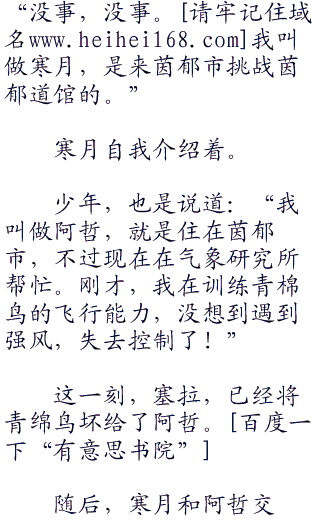 “没事，没事。[请牢记住域
名www.heihei168.com]我叫
做寒月，是来茵郁市挑战茵
郁道馆的。”
寒月自我介绍着。
少年，也是说道：“我
叫做阿哲，就是住在茵郁
市，不过现在在气象研究所
帮忙。刚才，我在训练青棉
鸟的飞行能力，没想到遇到
强风，失去控制了！”
这一刻，塞拉，已经将
青绵鸟坏给了阿哲。[百度一
下“有意思书院”]
随后，寒月和阿哲交